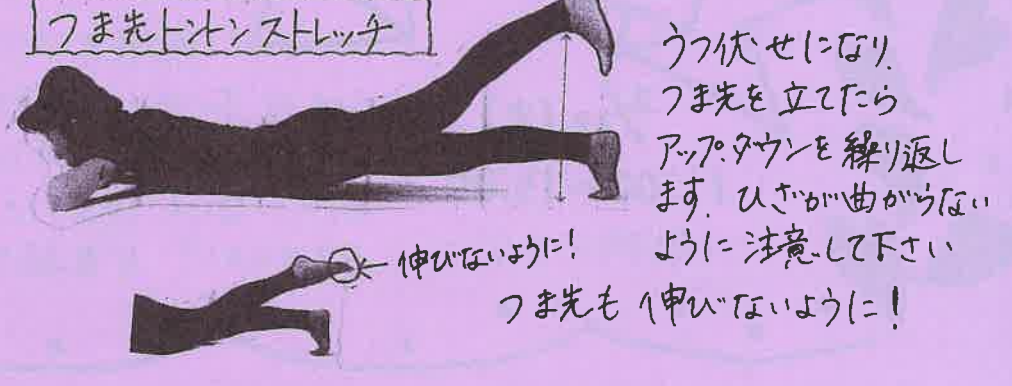 つま先トントンストレッチ
うつ伏せになり、
つま先を立てたら
アップ、ダウンを繰り返し
ます。ひざが曲がらない
ように注意して下さい
伸びないように!
つま先も伸びないように!